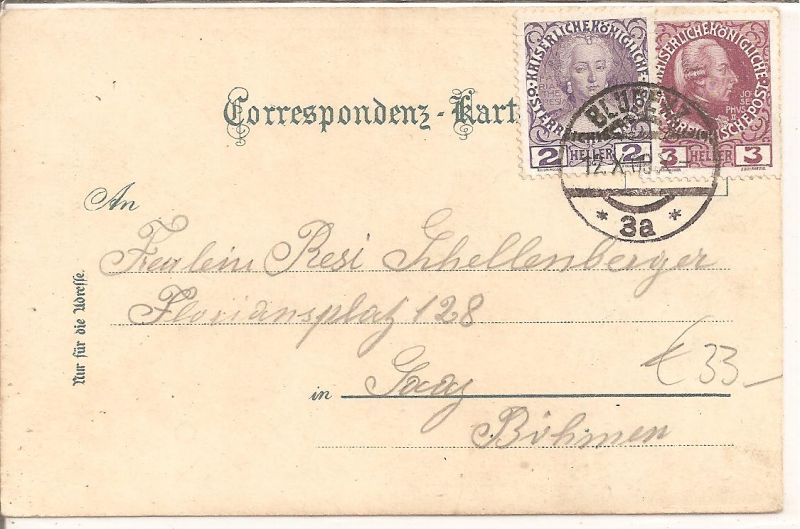 KAISERLICHE KÖNIGLICHE
KAISERLICHE KÖNIGLICHE
Correspondenz-Kart
JO
SE
PHVS
2 HELLER 2
3 HELLER 3
BLUDENZ
12.X
* 3a *
An
Fräulein Resi Schellenberger
Floriansplatz 128
in Saaz
Böhmen
Nur für die Adresse.
€ 33-